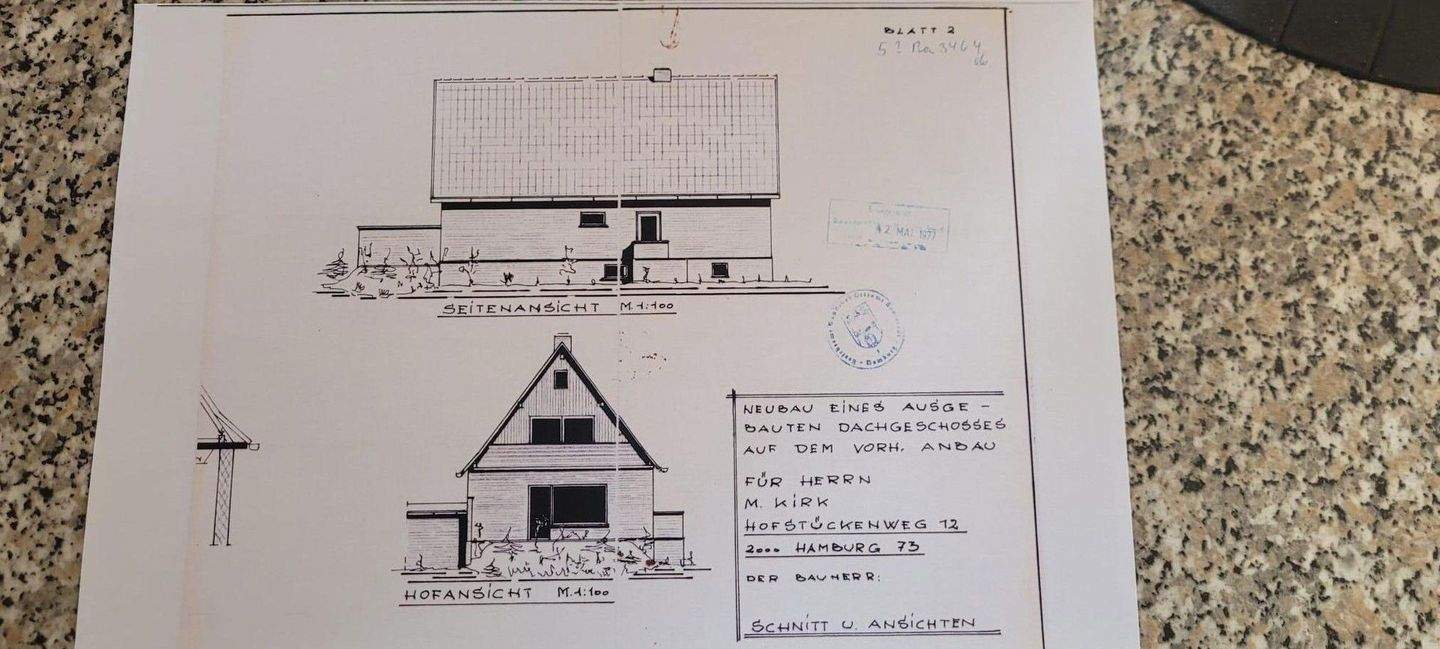 BLATT 2
SEITENANSICHT M. 1:100
12. MAI 1977
Hamburg
NEUBAU EINES AUSGE-
BAUTEN DACHGESCHOSSES
AUF DEM VORH. ANBAU
FÜR HERRN
M. KIRK
HOFSTÜCKENWEG 12
2000 HAMBURG 73
DER BAUHERR:
SCHNITT U. ANSICHTEN
HOFANSICHT M. 1:100